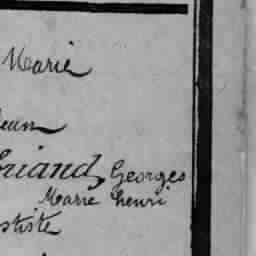 Marie
Jean
Briand, Georges
Marie henri
ptiste